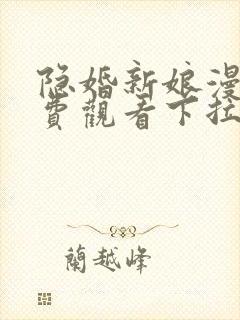 隐婚新娘漫
費觀看下拉
蘭越峰